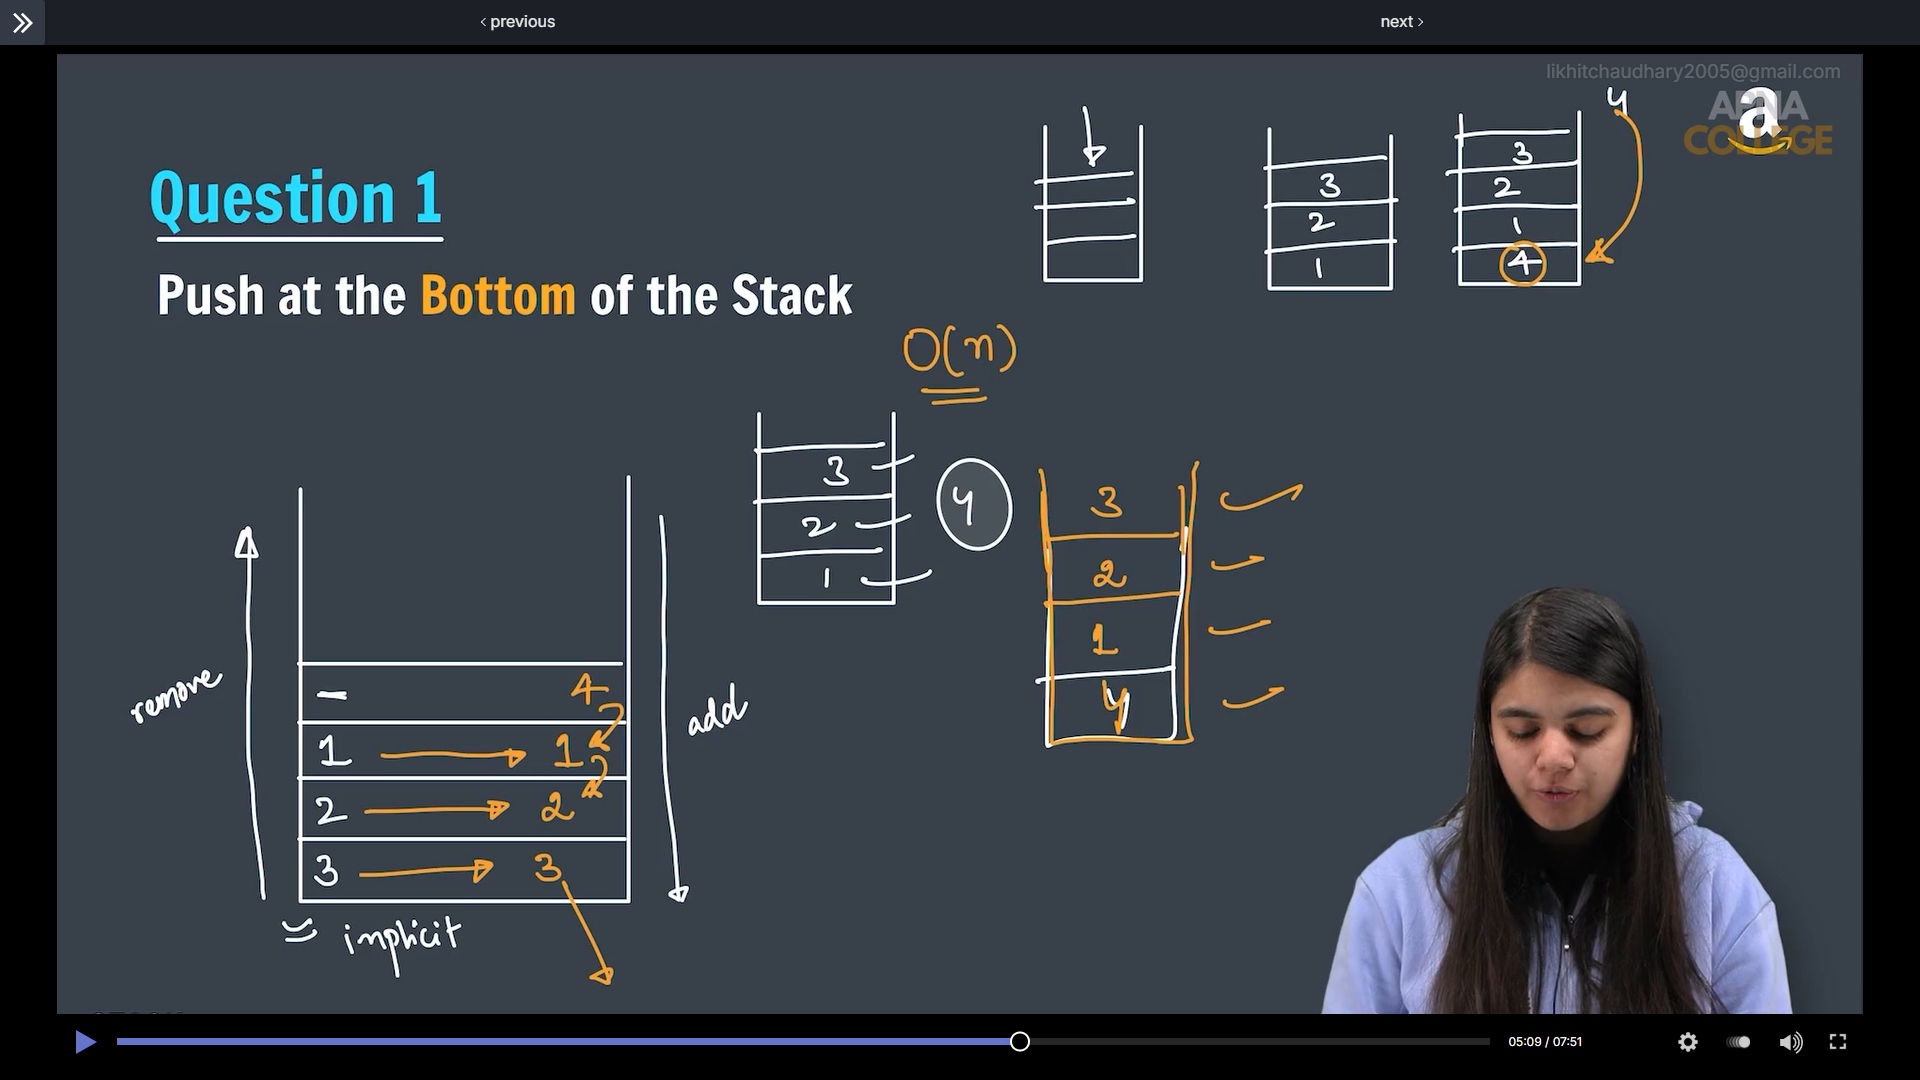 previous
next
likhitchaudhary2005@gmail.com
APNA
COLLEGE
a
Question 1
Push at the Bottom of the Stack
3
2
1
3
2
1
4
4
O(n)
3
2
1
4
3
2
1
4
remove
add
- 4
1 1
2 2
3 3
implicit
05:09 / 07:51